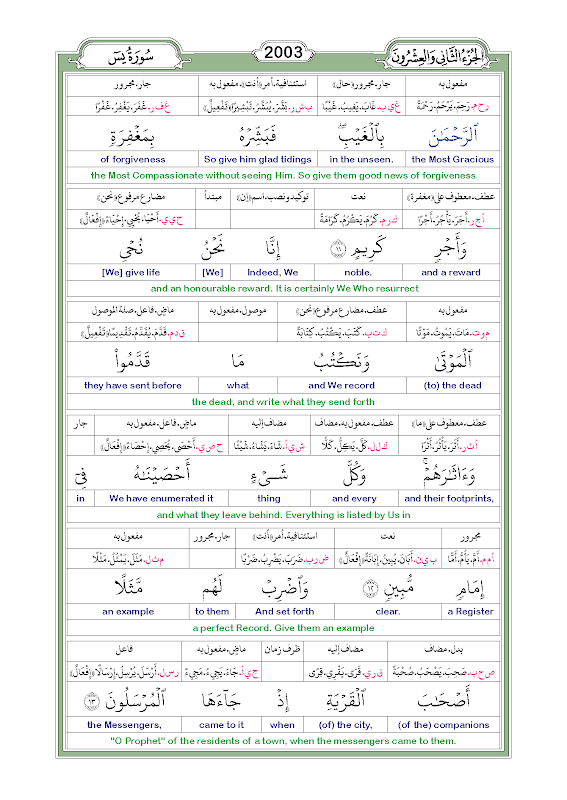 الجُزْءُ الثَّانِي وَالعِشْرُونَ 2003 سُورَةُ يس
مفعول به جار، مجرور(حال) استئنافية، أمر«أنت»، مفعول به جار، مجرور
رح م، رَحِمَ، يَرْحَمُ، رَحْمَةً غ ي ب، غَابَ، يَغِيبُ، غَيْبًا ب ش ر، بَشَّرَ، يُبَشِّرُ، تَبْشِيرًا«تَفْعِيلٌ» غ ف ر، غَفَرَ، يَغْفِرُ، غَفْرًا
ٱلرَّحْمَٰنَ بِٱلْغَيْبِ ۖ فَبَشِّرْهُ بِمَغْفِرَةٍ
the Most Gracious in the unseen. So give him glad tidings of forgiveness
the Most Compassionate without seeing Him. So give them good news of forgiveness
عطف، معطوف على«مغفرة» نعت توكيد ونصب، اسم«إن» مبتدأ مضارع مرفوع«نحن»
أ ج ر، أَجَرَ، يَأْجُرُ، أَجْرًا ك ر م، كَرُمَ، يَكْرُمُ، كَرَامَةً ح ي ي، أَحْيَا، يُحْيِي، إِحْيَاءً«إِفْعَالٌ»
وَأَجْرٍ كَرِيمٍ ١١ إِنَّا نَحْنُ نُحْيِ
and a reward noble. Indeed, We [We] [We] give life
and an honourable reward. It is certainly We Who resurrect
مفعول به عطف، مضارع مرفوع«نحن» موصول، مفعول به ماضٍ، فاعل، صلة الموصول
م و ت، مَاتَ، يَمُوتُ، مَوْتًا ك ت ب، كَتَبَ، يَكْتُبُ، كِتَابَةً ق د م، قَدَّمَ، يُقَدِّمُ، تَقْدِيمًا«تَفْعِيلٌ»
ٱلْمَوْتَىٰ وَنَكْتُبُ مَا قَدَّمُوا۟
(to) the dead and We record what they have sent before
the dead, and write what they send forth
عطف، معطوف على«ما» عطف، مفعول به، مضاف مضاف إليه ماضٍ، فاعل، مفعول به جار
أ ث ر، أَثَرَ، يَأْثُرُ، أَثْرًا ك ل ل، كَلَّ، يَكِلُّ، كَلًّا ش ي أ، شَاءَ، يَشَاءُ، شَيْئًا ح ص ي، أَحْصَى، يُحْصِي، إِحْصَاءً«إِفْعَالٌ»
وَءَاثَٰرَهُمْ ۚ وَكُلَّ شَىْءٍ أَحْصَيْنَٰهُ فِىٓ
and their footprints, and every thing We have enumerated it in
and what they leave behind. Everything is listed by Us in
مجرور نعت استئنافية، أمر«أنت» جار، مجرور مفعول به
أ م م، أَمَّ، يَأُمُّ، أَمًّا ب ي ن، أَبَانَ، يُبِينُ، إِبَانَةً«إِفْعَالٌ» ض ر ب، ضَرَبَ، يَضْرِبُ، ضَرْبًا م ث ل، مَثَلَ، يَمْثُلُ، مَثْلًا
إِمَامٍ مُّبِينٍ ١٢ وَٱضْرِبْ لَهُم مَّثَلًا
a Register clear. And set forth to them an example
a perfect Record. Give them an example
بدل، مضاف مضاف إليه ظرف زمان ماضٍ، مفعول به فاعل
ص ح ب، صَحِبَ، يَصْحَبُ، صُحْبَةً ق ر ي، قَرَى، يَقْرِي، قِرًى ج ي أ، جَاءَ، يَجِيءُ، مَجِيءً ر س ل، أَرْسَلَ، يُرْسِلُ، إِرْسَالًا«إِفْعَالٌ»
أَصْحَٰبَ ٱلْقَرْيَةِ إِذْ جَآءَهَا ٱلْمُرْسَلُونَ ١٣
(of the) companions (of) the city, when came to it the Messengers,
"O Prophet" of the residents of a town, when the messengers came to them.